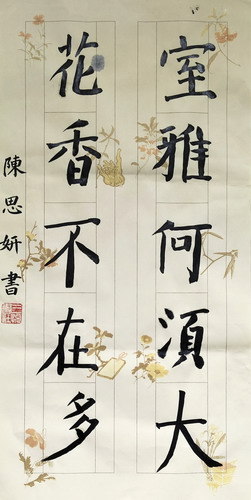 室雅何須大
花香不在多
陳思妍書